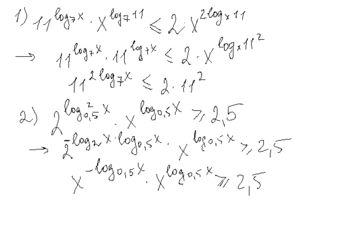 1) 11^{log_7 x} · x^{log_7 11} ≤ 2 · x^{2 log_x 11}
→ 11^{log_7 x} · 11^{log_7 x} ≤ 2 · x^{log_x 11^2}
11^{2 log_7 x} ≤ 2 · 11^2
2) 2^{log_{0,5}^2 x} · x^{log_{0,5} x} ≥ 2,5
→ 2^{-log_2 x · log_{0,5} x} · x^{log_{0,5} x} ≥ 2,5
x^{-log_{0,5} x} · x^{log_{0,5} x} ≥ 2,5